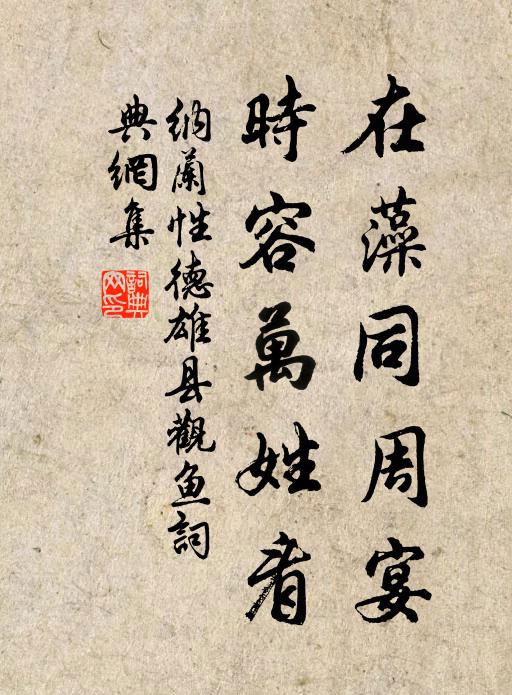 在藻同周宴
時容萬姓看
納蘭性德雄县觀鱼詞
典網集
詞典网印